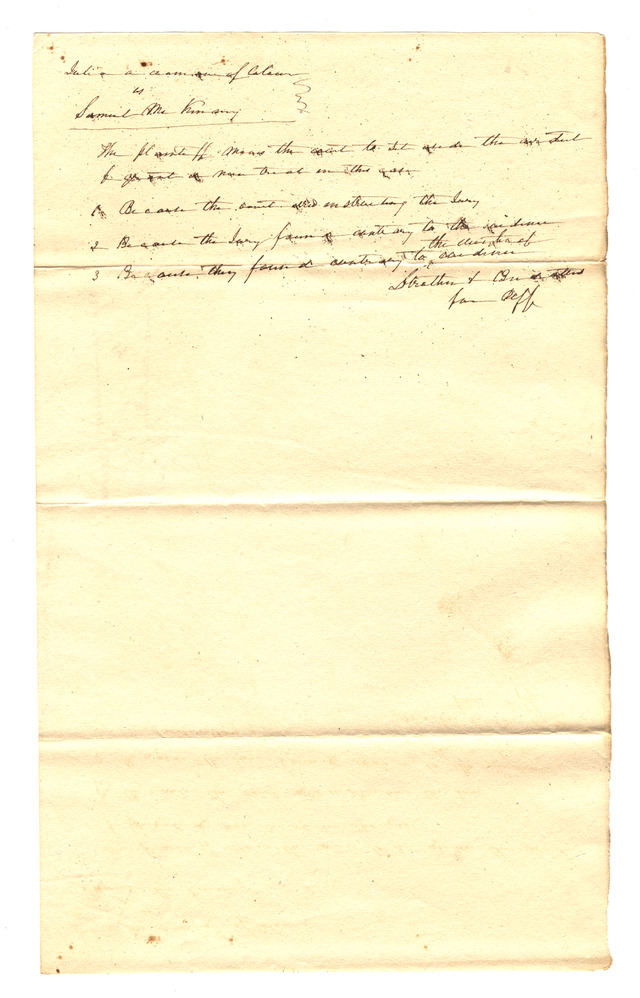 Julia a woman of Colour
vs
Samuel McKinney
The plaintiff moves the court to set aside the verdict
& grant a new trial in this case
1 Because the court in instructing the Jury
2 Because the Jury found contrary to the evidence
3 Because they found contrary to the weight of evidence
Strother &
for Plff